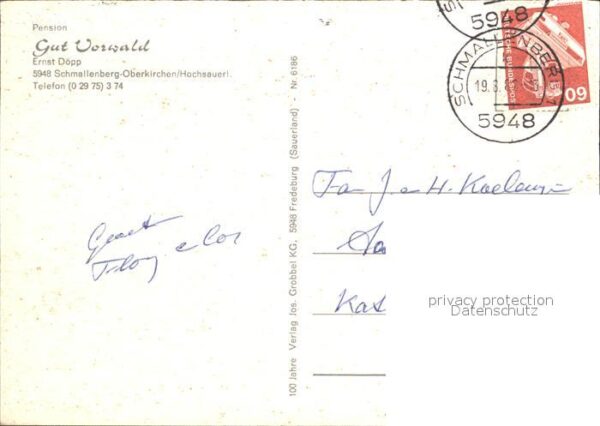 Pension
Gut Vorwald
Ernst Döpp
5948 Schmallenberg-Oberkirchen/Hochsauerl.
Telefon (0 29 75) 3 74
100 Jahre Verlag Jos. Grobbel KG, 5948 Fredeburg (Sauerland) - Nr. 6186
5948
SCHMALLENBERG 1
19.8.
5948
DEUTSCHE BUNDESPOST
60
Fam J H.
Kas
privacy protection
Datenschutz